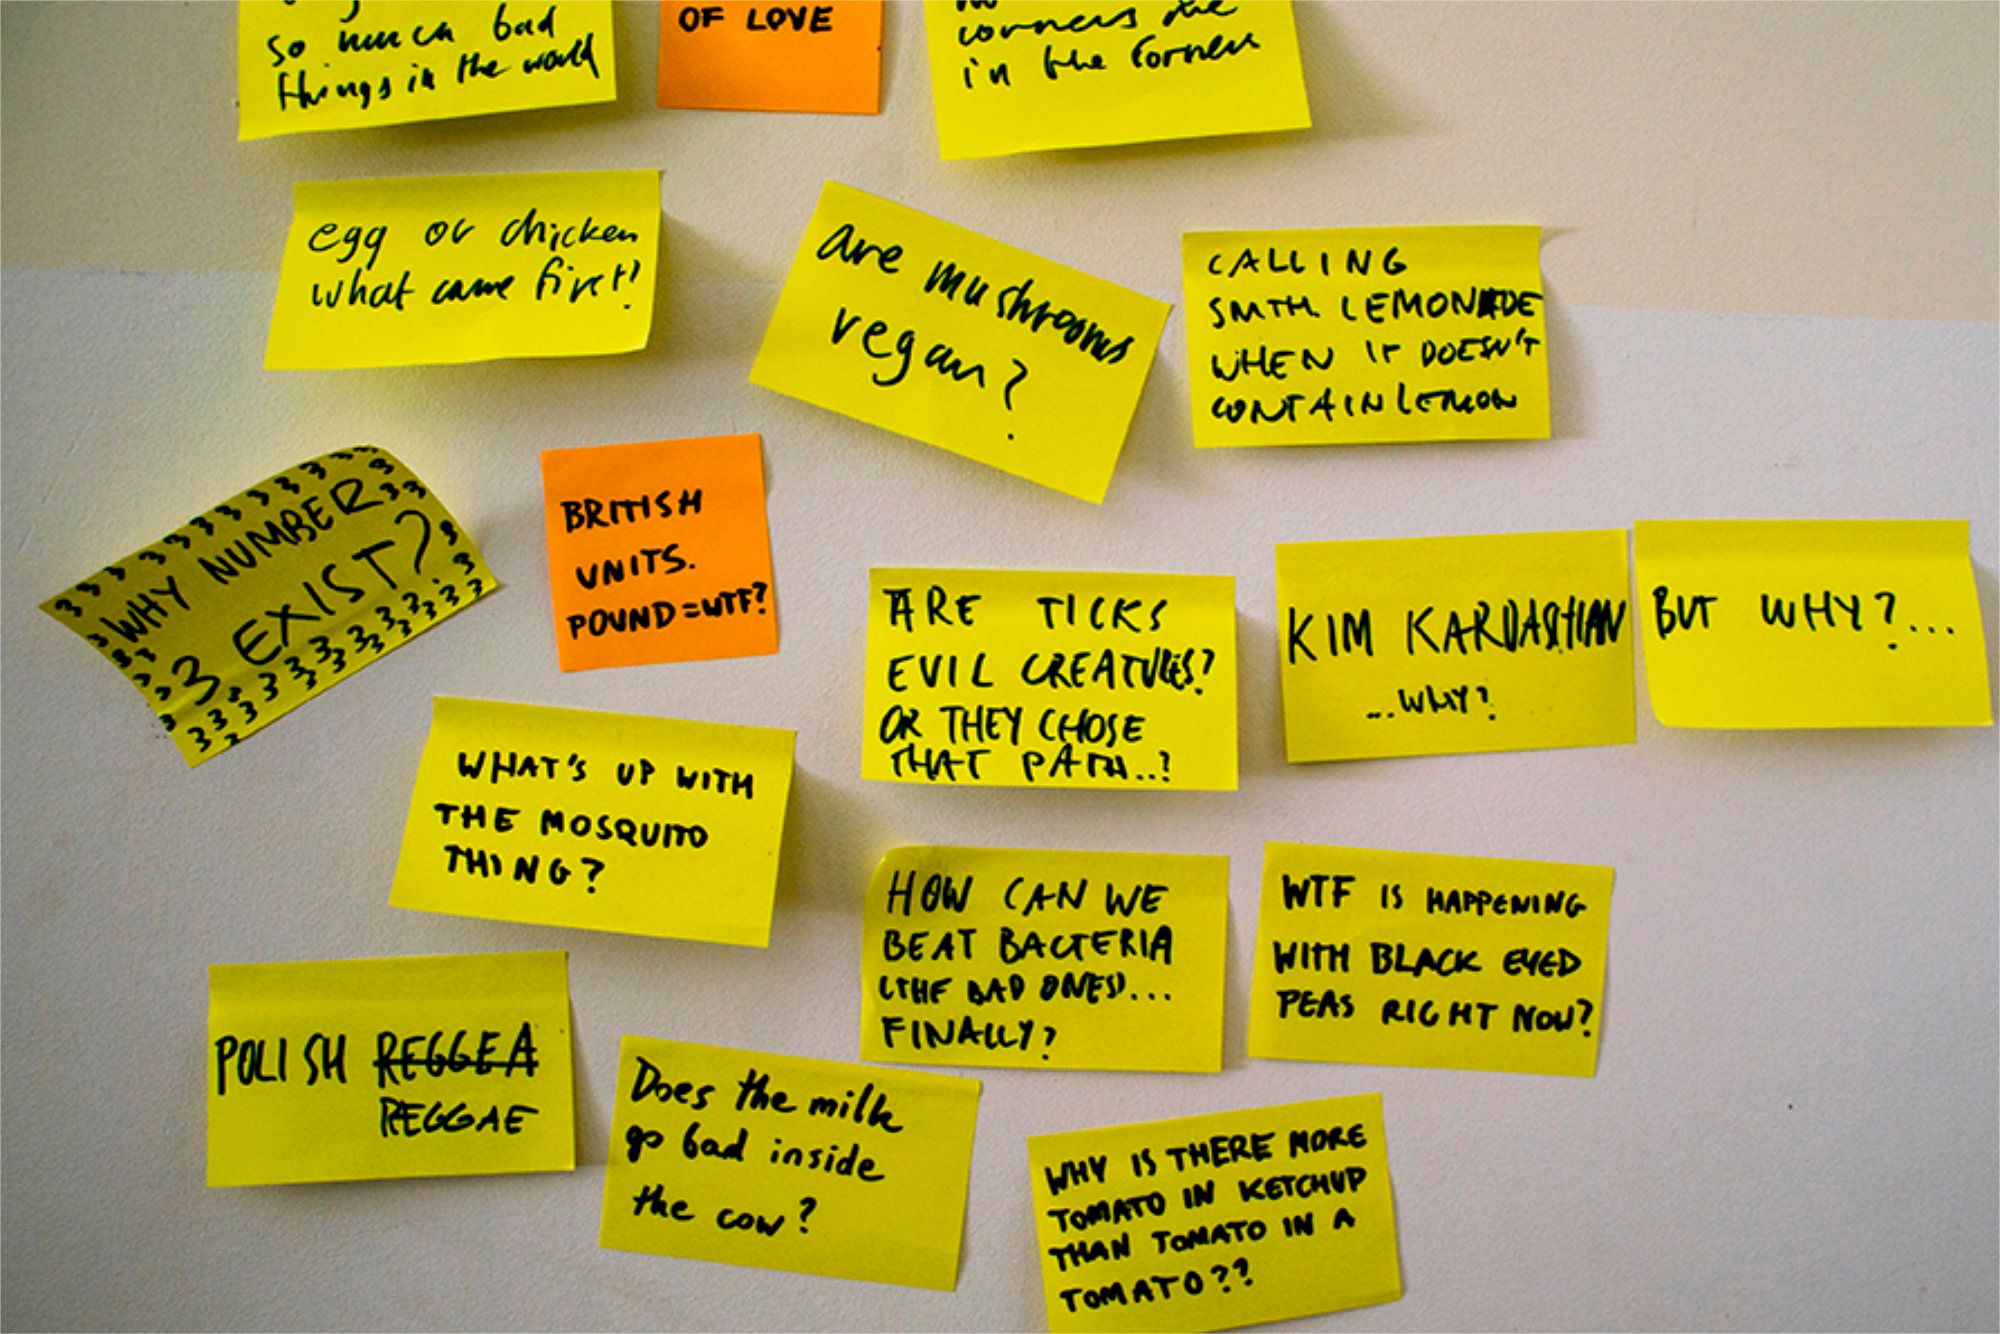 so much bad
things in the world
OF LOVE
corners the
in the corners
egg or chicken
what came first?
are mushrooms
vegan?
CALLING
SMTH LEMONADE
WHEN IT DOESN'T
CONTAIN LEMON
3 3 3 3 3 3 3 3 3 3 3
WHY NUMBER
3 EXIST?
3 3 3 3 3 3 3 3 3 3 3
BRITISH
UNITS.
POUND = WTF?
ARE TICKS
EVIL CREATURES?
OR THEY CHOSE
THAT PATH..?
KIM KARDASHIAN
...WHY?
BUT WHY?...
WHAT'S UP WITH
THE MOSQUITO
THING?
HOW CAN WE
BEAT BACTERIA
(THE BAD ONES)...
FINALLY?
WTF IS HAPPENING
WITH BLACK EYED
PEAS RIGHT NOW?
POLISH REGGEA
REGGAE
Does the milk
go bad inside
the cow?
WHY IS THERE MORE
TOMATO IN KETCHUP
THAN TOMATO IN A
TOMATO??